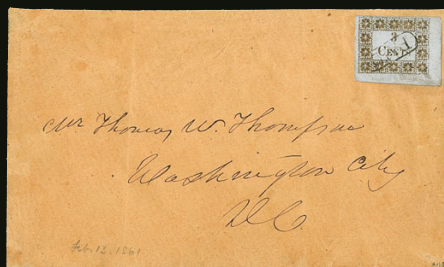 3
CENTS
PAID
Mr Thomas W. Thompson
Washington City
D.C.
Feb. 12. 1861